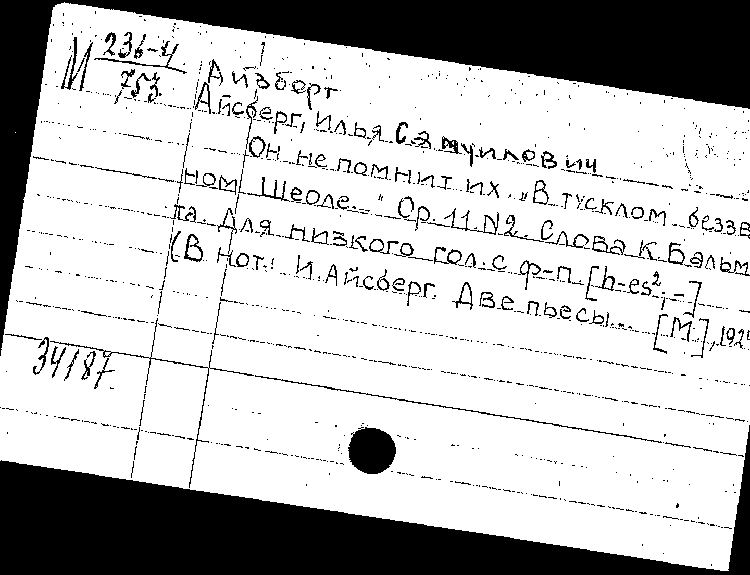 М 236-4
753
Айзберг
Айсберг, Илья Самуилович
Он не помнит их. „В тусклом беззв
ном Шеоле..." Ор. 11 N2. Слова К. Бальм
та. Для низкого гол. с ф-п. [h-es²; -]
(В нот.: И. Айсберг. Две пьесы... [М.], 192
34187